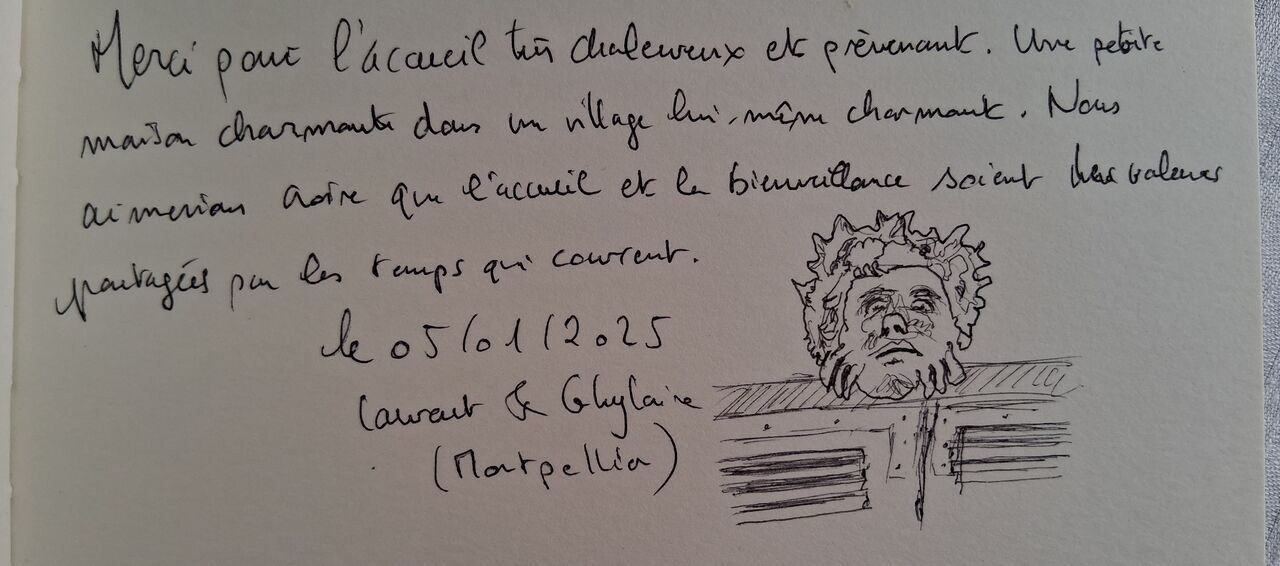 Merci pour l'accueil très chaleureux et prévenant. Une petite
maison charmante dans un village lui-même charmant. Nous
aimerions croire que l'accueil et la bienveillance soient des valeurs
partagées par les temps qui courent.
le 05/01/2025
Laurent & Ghylaine
(Montpellier)